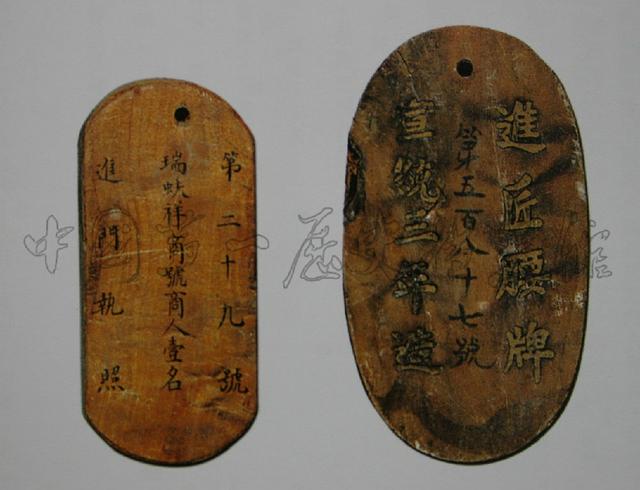 第二十九號
瑞蚨祥商號商人壹名
進門執照
進匠腰牌
第五百八十七號
宣統三年造
中國第一歷史檔案館